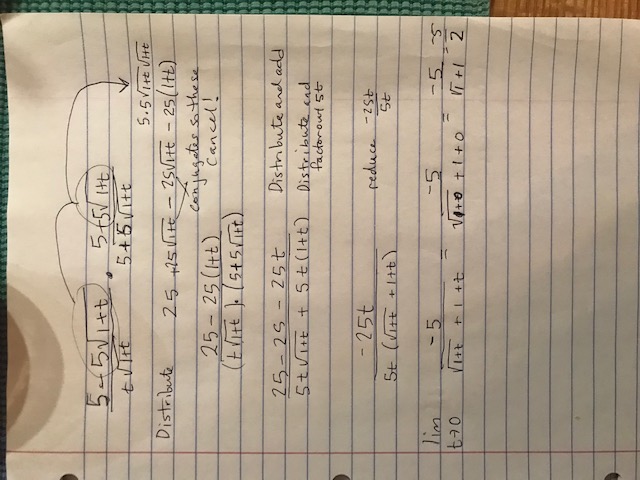 5 - 5√1+t / t√1+t · 5+5√1+t / 5+5√1+t
5·5√1+t √1+t
Distribute 25 +25√1+t - 25√1+t - 25(1+t)
conjugates so these
cancel!
25 - 25(1+t) / (t√1+t)·(5+5√1+t)
25 - 25 - 25t / 5t√1+t + 5t(1+t) Distribute and add
Distribute and
factor out 5t
-25t / 5t (√1+t + 1+t) reduce -25t / 5t
lim t→0 -5 / √1+t + 1 + t = -5 / √1+0 + 1 + 0 = -5 / √1 + 1 = -5 / 2